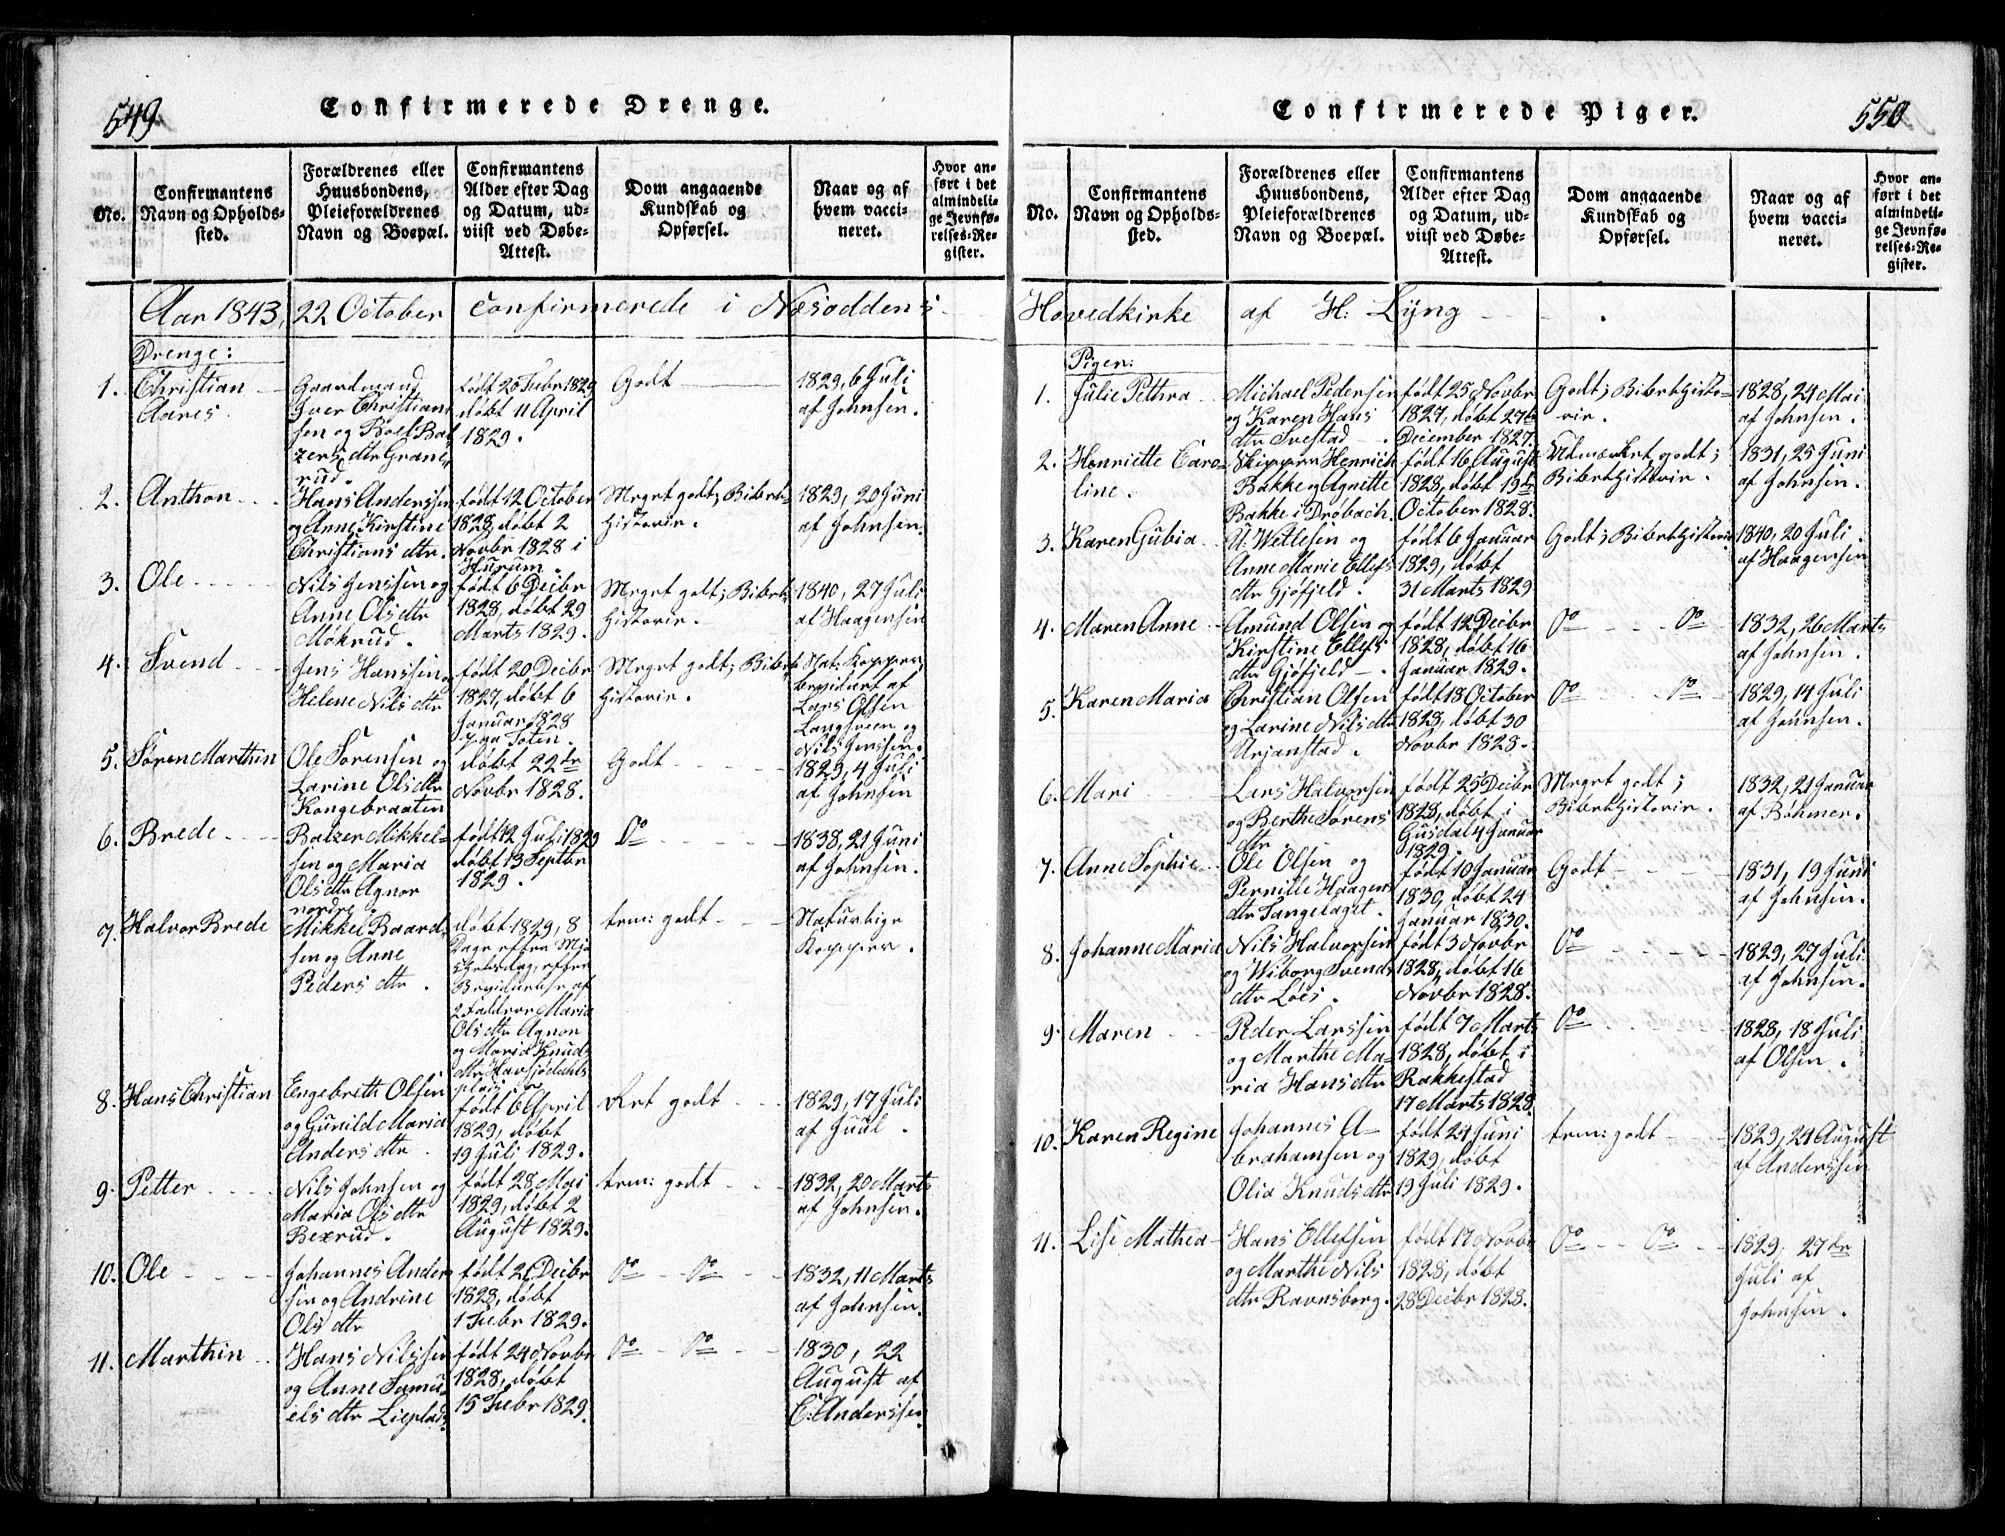 549
Confirmerede Drenge.
No.
Confirmantens
Navn og Opholds-
sted.
Forældrenes eller
Huusbondens,
Pleieforældrenes
Navn og Boepæl.
Confirmantens
Alder efter Dag
og Datum, ud-
viist ved Døbe-
Attest.
Dom angaaende
Kundskab og
Opførsel.
Naar og af
hvem vacci-
neret.
Hvor an-
ført i det
almindeli-
ge Jevnfø-
relses-Re-
gister.
Aar 1843, 22 October confirmerede i Næsoddens
Drenge:
1. Christian
Aares.
Gaardmand
Iver Christian-
sen og Roel Bal-
zers dtr Grane-
rud.
født 20 Febr 1829
døbt 11 April
1829.
Godt
1829, 6 Juli
af Johnsen.
2. Anthon
Hans Anderssen
og Anne Kirstine
Christians dtr.
født 12 October
1828, døbt 2
Novbr 1828 i
Hurum.
Meget godt; Bibel-
historie.
1829, 20 Juni
af Johnsen.
3. Ole
Nils Jenssen og
Anne Ols dtr
Møkrud.
født 6 Decbr
1828, døbt 29
Marts 1829.
Meget godt; Bibel-
historie.
1840, 27 Juli
af Haagensen
4. Svend
Jens Hanssen og
Helene Nils dtr
født 20 Decbr
1827, døbt 6
Januar 1828
paa Toten.
Meget godt; Bibel-
historie.
Nat: Kopper,
bevidnet af
Lars Olsen
Langhveen og
Nils Jenssen.
5. Søren Marthin
Ole Sørensen og
Larine Ols dtr
Kongebraaten
døbt 22de
Novbr 1828.
Godt
1829, 4 Juli
af Johnsen
6. Brede
Balzer Mikkel-
sen og Maria
Ols dtr Agnor
nordre
født 12 Juli 1829
døbt 13 Septbr
1829.
Do
1838, 21 Juni
af Johnsen.
7. Halvor Brede
Mikkel Baard-
sen og Anne
Peders dtr.
døbt 1829, 8
Dage efter Mi-
chelsdag, efter
Bevidnelse af
2 Faddere Maria
Ols dtr Agnor
og Maria Knuds
dtr Havsjødahls
plads
tem: godt
Naturlige
Kopper.
8. Hans Christian
Engebreth Olsen
og Gunild Maria
Anders dtr.
født 6 April
1829, døbt
19 Juli 1829.
Ret godt
1829, 17 Juli
af Juul.
9. Petter
Nils Johnsen og
Maria Ols dtr
Bexrud.
født 28 Mai
1829, døbt 2
August 1829.
tem: godt
1832, 20 Marts
af Johnsen.
10. Ole
Johannes Ander-
sen og Andrine
Ols dtr
født 21 Decbr
1828, døbt
1 Febr 1829.
Do Do
1832, 11 Marts
af Johnsen.
11. Marthin
Hans Nilssen
og Anne Samu-
els dtr Lieplads
født 24 Novbr
1828, døbt
15 Febr 1829.
Do Do
1830, 22
August af
C: Anderssen.
Confirmerede Piger.
550
No.
Confirmantens
Navn og Opholds-
sted.
Forældrenes eller
Huusbondens,
Pleieforældrenes
Navn og Boepæl.
Confirmantens
Alder efter Dag
og Datum, ud-
viist ved Døbe-
Attest.
Dom angaaende
Kundskab og
Opførsel.
Naar og af
hvem vacci-
neret.
Hvor an-
ført i det
almindeli-
ge Jevnfø-
relses-Re-
gister.
Hovedkirke af H: Lyng
Pigen:
1. Julie Pethra
Michael Pedersen
og Karen Hans
dtr Svestad
født 25 Novbr
1827, døbt 27de
December 1827.
Godt; Bibelhisto-
rie.
1828, 24 Mai
af Johnsen.
2. Henriette Caro-
line.
Skipper Henrich
Bakke og Agnette
Bakke i Drøbach.
født 16 August
1828, døbt 19de
October 1828.
Udmærket godt;
Bibelhistorie.
1831, 25 Juni
af Johnsen.
3. Karen Gubia
U. Wetlesen og
Anne Marie Ellefs
dtr Gjøfjeld.
født 6 Januar
1829, døbt
31 Marts 1829
Godt; Bibelhistorie
1840, 20 Juli
af Haagensen
4. Maren Anne
Amund Olsen og
Kirstine Ellefs
dtr Gjøfjeld
født 12 Decbr
1828, døbt 16
Januar 1829.
Do Do
1832, 26 Marts
af Johnsen.
5. Karen Maria
Christian Olsen
og Larine Nils dtr
Urjanstad.
født 18 October
1828, døbt 30
Novbr 1828.
Do Do
1829, 14 Juli
af Johnsen.
6. Mari
Lars Halvorsen
og Berthe Sørens
dtr
født 25 Decbr
1828, døbt i
Gusdal 4 Januar
1829.
Meget godt;
Bibelhistorie.
1832, 21 Januar
af Bøhmer.
7. Anne Sophie
Ole Olsen og
Pernille Haagens
dtr Tangelaget.
født 10 Januar
1830, døbt 24
Januar 1830.
Godt
1831, 19 Juni
af Johnsen.
8. Johanne Maria
Nils Halvorsen
og Wiborg Svends
dtr Løes.
født 3 Novbr
1828, døbt 16
Novbr 1828.
Do
1829, 27 Juli
af Johnsen.
9. Maren
Peder Larssen
og Marthe Ma-
ria Hans dtr
født 7 Marts
1828, døbt i
Rakkestad
17 Marts 1828.
Do
1828, 18 Juli
af Olsen.
10. Karen Regine
Johannes A-
brahamsen og
Olia Knuds dtr
født 24 Juni
1829, døbt
19 Juli 1829.
tem: godt
1829, 24 August
af Anderssen
11. Lise Mathea
Hans Ellefsen
og Marthe Nils
dtr Ravnsborg.
født 17 Novbr
1828, døbt
28 Decbr 1828.
Do Do
1829, 27de
Juli af
Johnsen.